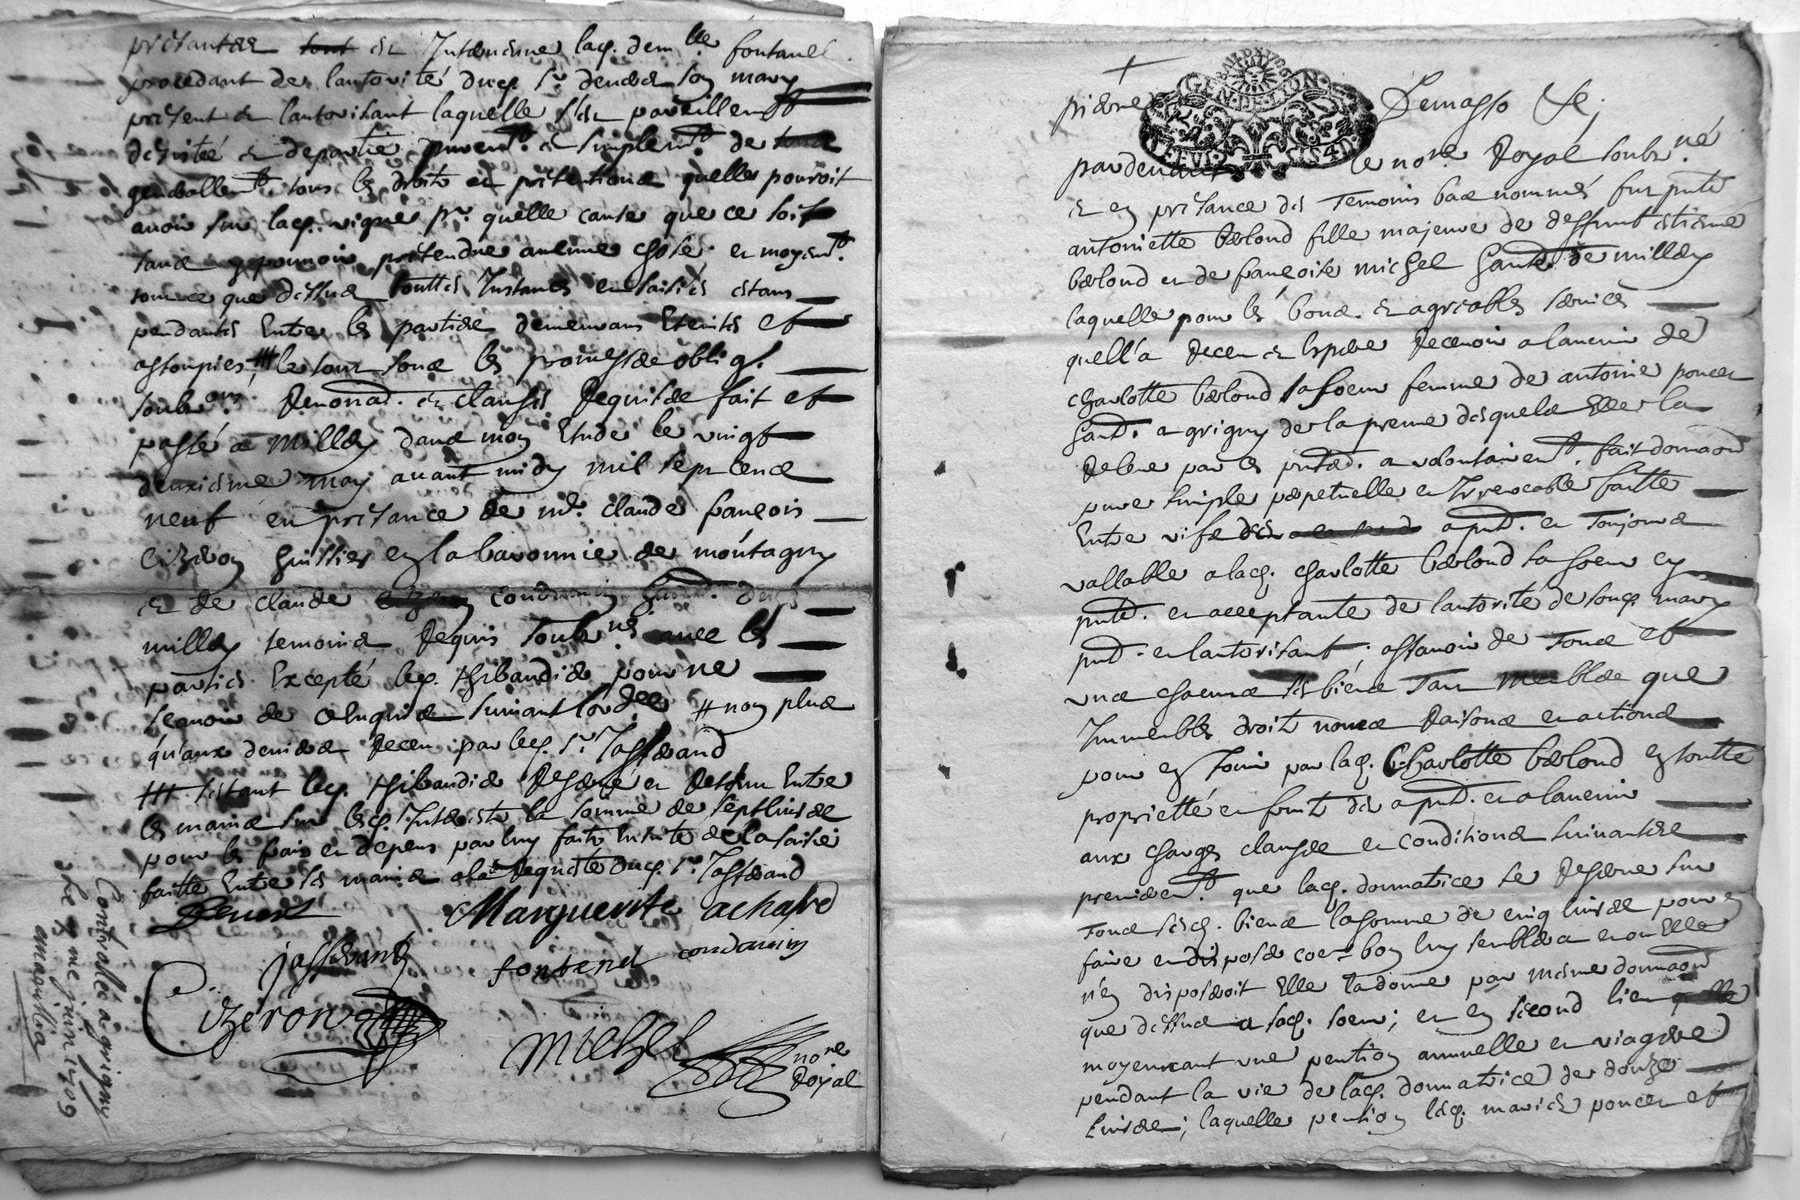 presantes et Intervenue lad. dem.lle fontanel
procedant de lautorité dud. sr. denver son mary
present et lautorisant laquelle sest pareillemt
desisté et departie puremt. et simplemt. de
generallemt. tous les droits et pretentions quelle pourroit
avoir sur lad. vigne pr. quelle cause que ce soit
sans y pouvoir pretendre aucune chose. et moyent.
tout ce que dessus touttes Instances et saisies estans
pendantes Entre les parties demeurans Eteintes et
assoupies, le tout sous les promesses oblig.
soub.ons Renonad. et clauses Requises fait et
passé a Millery dans mon Etude le vingt
deuxieme may avant midy mil sept cens
neuf en presance de mr. claude françois
Cizeron huissier en la baronnie de montagny
et de claude condamin hant. dud.
millery temoins Requis soub.nés avec les
parties Excepté led. thibaudier pour ne
scavoir de ce Enquis suivant lord.ce # non plus
qu'aux deniers Receu par led. sr. Jasserand
# restant led. thibaudier Reservé et Retenu Entre
les mains sur lesd. Interests la somme de sept livres
pour les frais et depens par luy faits Ensuite de la saisie
faitte Entre ses mains a la Requeste dud. sr. Jasserand
Marguerite achard
jasserand
fontenel condamin
Cizeron
Michel
no.re Royal
Controllé a grigny
le 2e me juin 1709
pierre Demasso &c.
GEN. DE LYON
pardevant le no.re Royal soub.né
et en presance des temoins bas nommés fut pnte
antoinette berlond fille majeure de deffunt estienne
berlond et de françoise michel hante de millery
laquelle pour les bons et agreables services
quell'a Receu et Espere Recevoir a lavenir de
charlotte berlond sa soeur femme de antoine poncet
hant. a grigny de la preuve desquels Elle la
Releve par ces pntes. a volontairemt. fait donnaon
pure simple perpetuelle et Irrevocable faitte
Entre vifs des a pnt. et toujours
vallable a lad. charlotte berlond sa soeur cy
pnte. et acceptante de lautorité de sond. mary
pnt. et lautorisant, assavoir de tous et
uns chacuns ses biens tant meubles que
Immeubles droits noms Raisons et actions
pour en jouir par lad. Charlotte berlond en toutte
proprietté et fruits des a pnt. et a lavenir
aux charges clauses et conditions suivantes
premieremt. que lad. donnatrice se Reserve sur
tous sesd. biens la somme de cinq livres pour en
faire et disposer coe. bon luy semblera et ou Elle
n'en disposeroit Elle la donne par mesme donnaon
que dessus a sad. soeur; et en second lieu
moyennant une pention annuelle et viagere
pendant la vie de lad. donnatrice de douze
livres; laquelle pention lesd. mariés poncet et